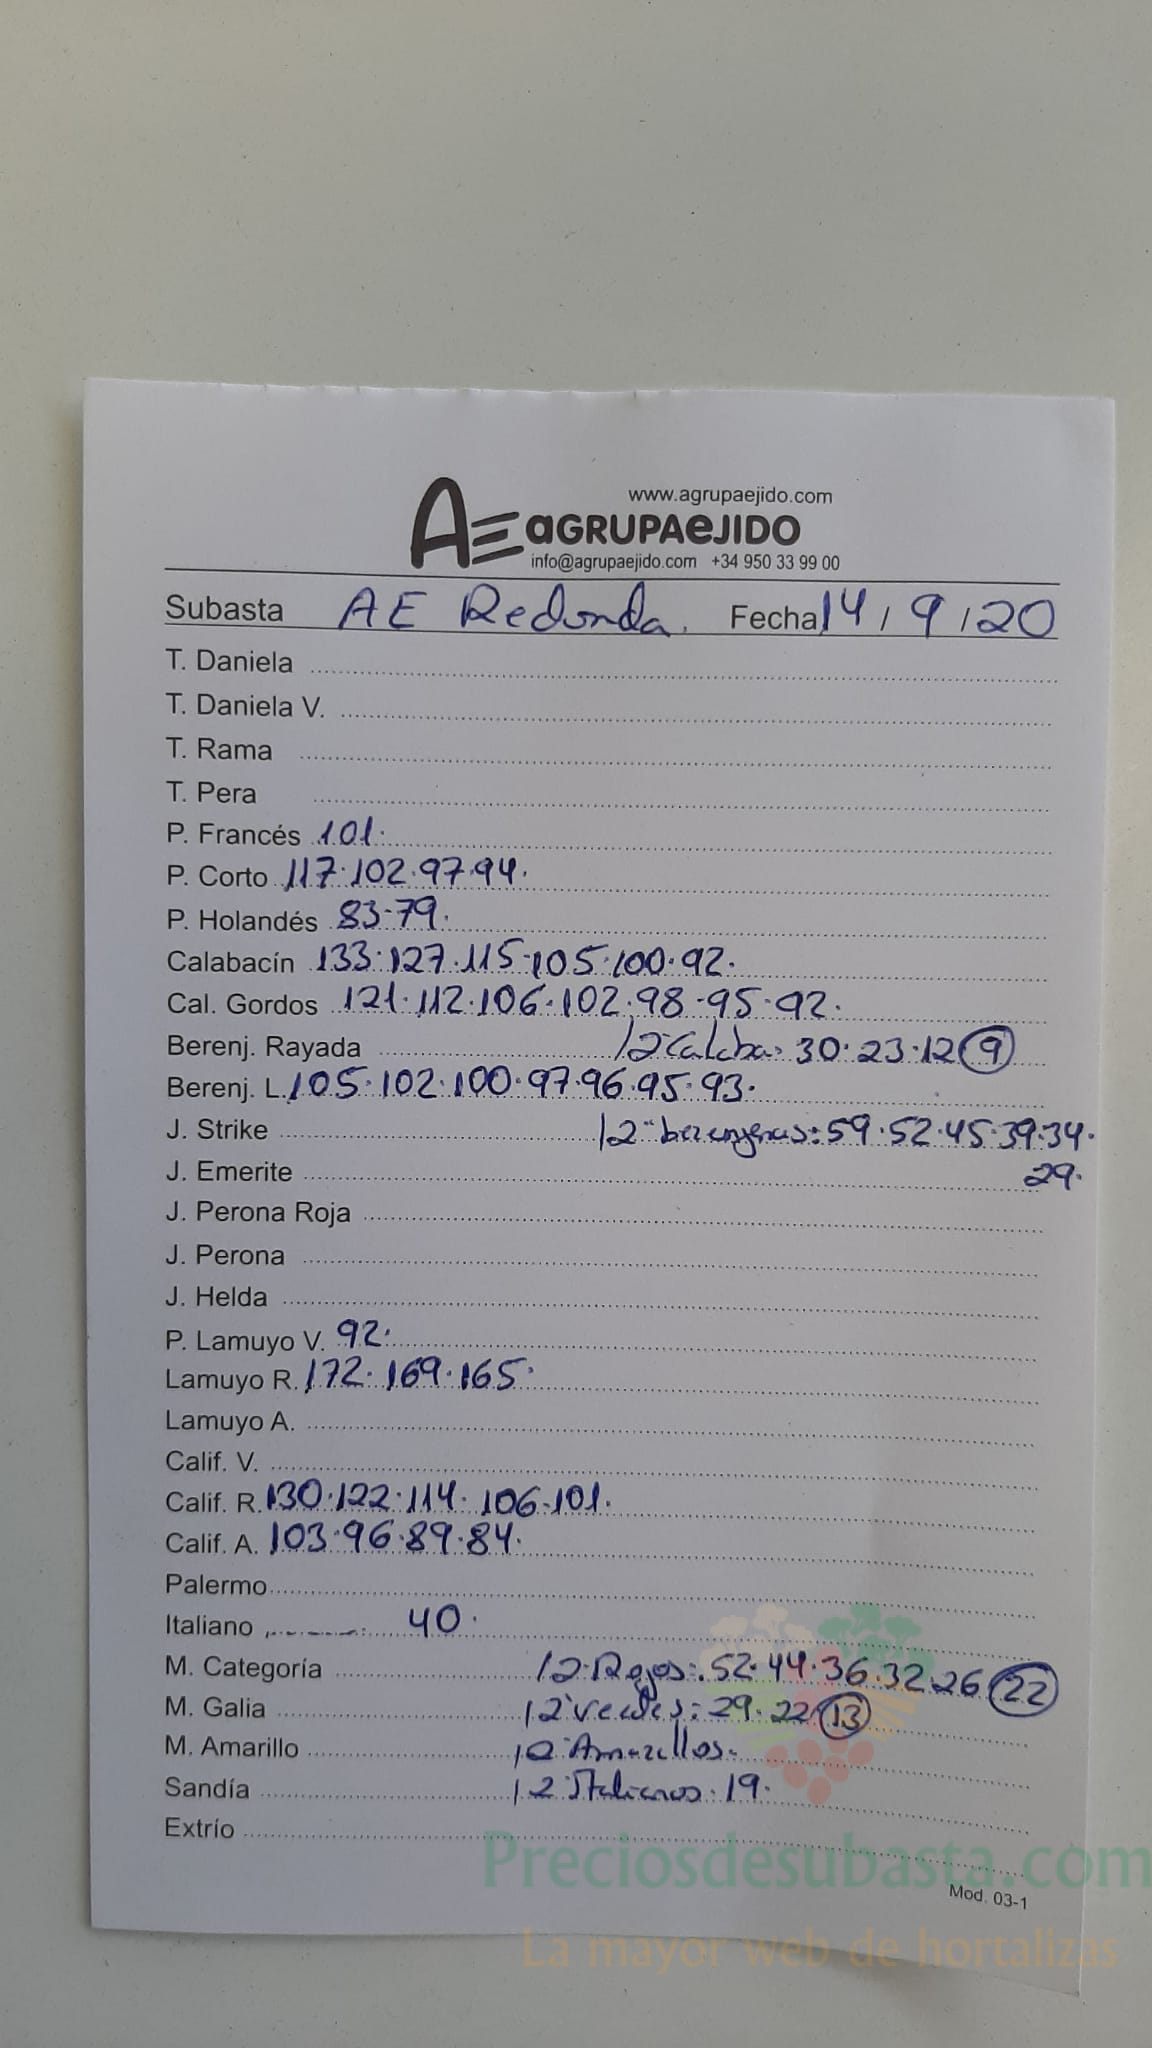 www.agrupaejido.com
AE aGRUPAeJIDO
info@agrupaejido.com +34 950 33 99 00
Subasta AE Redonda. Fecha 14/9/20
T. Daniela
T. Daniela V.
T. Rama
T. Pera
P. Francés 101.
P. Corto 117.102.97.94.
P. Holandés 83.79.
Calabacín 133.127.115.105.100.92.
Cal. Gordos 121.112.106.102.98.95.92.
Berenj. Rayada 12 Calaba. 30.23.12 9
Berenj. L. 105.102.100.97.96.95.93.
J. Strike 12 berenjenas: 59.52.45.39.34.
J. Emerite 29.
J. Perona Roja
J. Perona
J. Helda
P. Lamuyo V. 92.
Lamuyo R. 172.169.165.
Lamuyo A.
Calif. V.
Calif. R. 130.122.114.106.101.
Calif. A. 103.96.89.84.
Palermo
Italiano 40.
M. Categoría 12 Rojos: 52.44.36.32.26 22
M. Galia 12 verdes: 29.22 13
M. Amarillo 12 Amarillos.
Sandía 12 Italianos. 19.
Extrío
Preciosdesubasta.com
Mod. 03-1
La mayor web de hortalizas